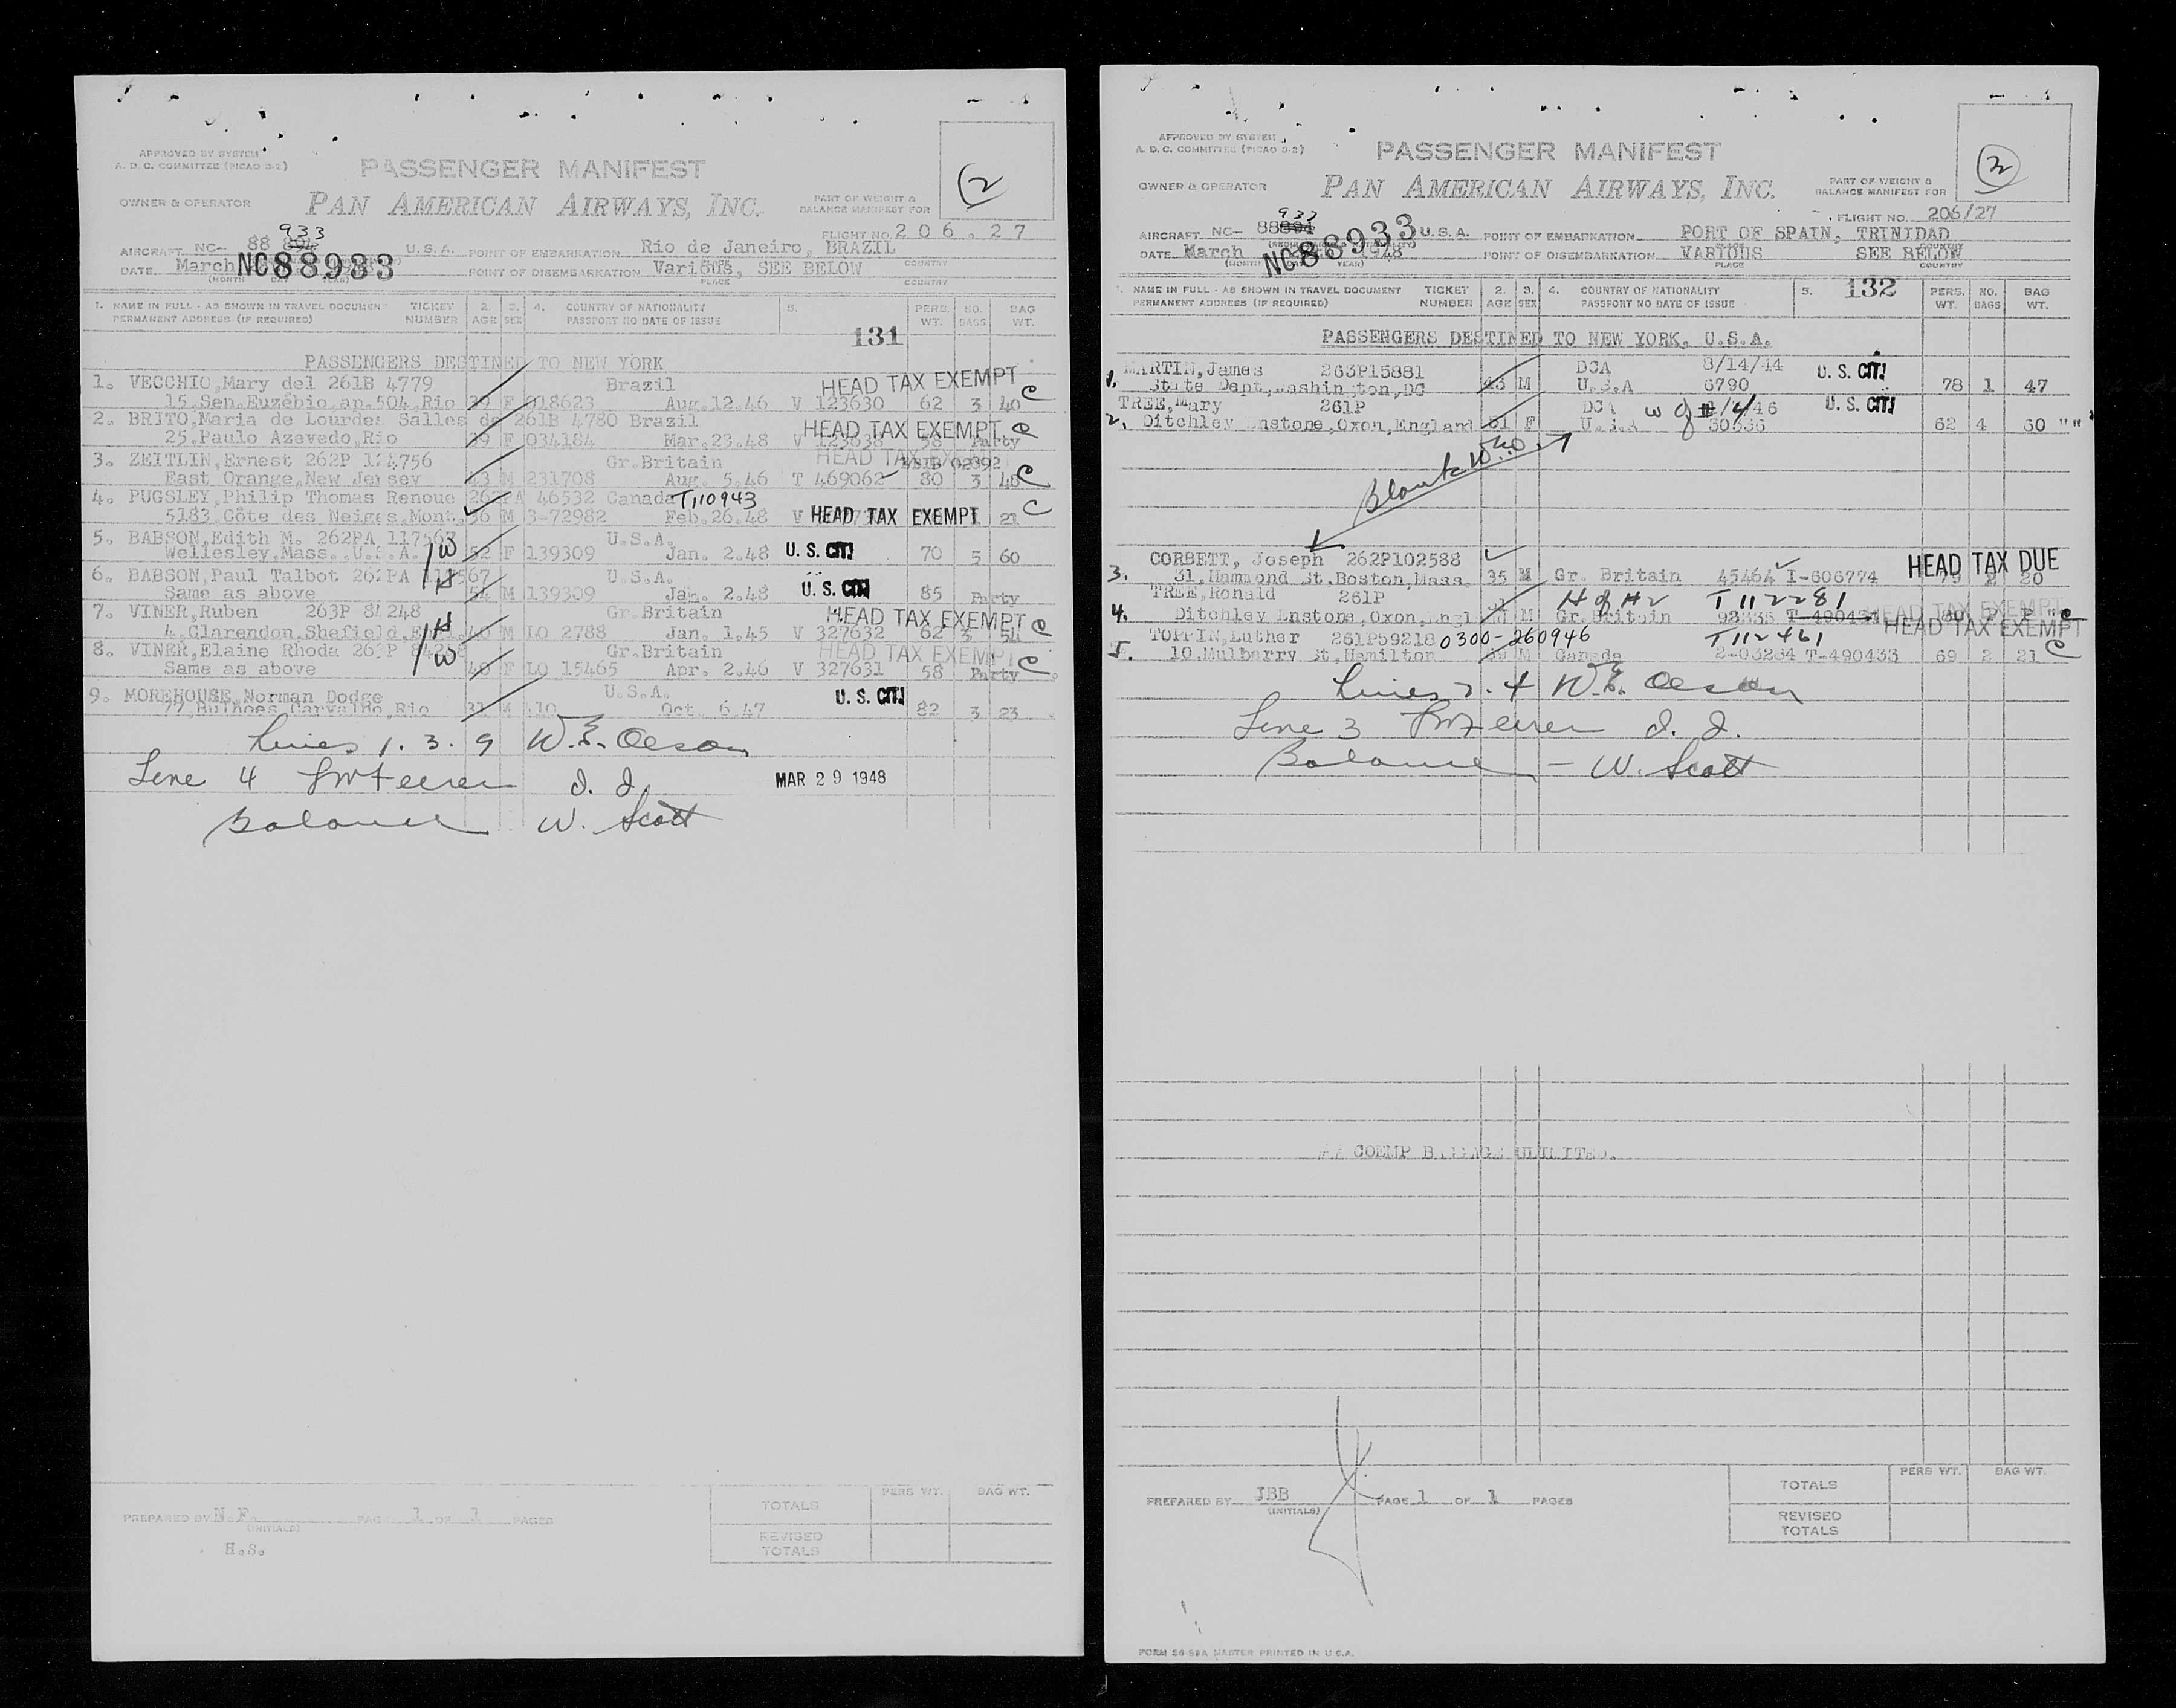 APPROVED BY SYSTEM
A. D. C. COMMITTEE (PICAO 3-2)
PASSENGER MANIFEST
2
OWNER & OPERATOR
PAN AMERICAN AIRWAYS, INC.
PART OF WEIGHT &
BALANCE MANIFEST FOR
FLIGHT NO. 206.27
933
AIRCRAFT NC- 88 U.S.A. POINT OF EMBARKATION Rio de Janeiro, BRAZIL
DATE March NC88933 POINT OF DISEMBARKATION Various, SEE BELOW
(MONTH DAY YEAR) PLACE COUNTRY
1. NAME IN FULL - AS SHOWN IN TRAVEL DOCUMENT TICKET 2. 3. 4. COUNTRY OF NATIONALITY 5. PERS. NO. BAG
PERMANENT ADDRESS (IF REQUIRED) NUMBER AGE SEX PASSPORT NO DATE OF ISSUE 131 WT. BAGS WT.
PASSENGERS DESTINED TO NEW YORK
1. VECCHIO,Mary del 261B 4779 Brazil HEAD TAX EXEMPT C
15,Sen.Euzébio,ap.504,Rio 39 F 018623 Aug.12.46 V 123630 62 3 40
2. BRITO,Maria de Lourdes Salles de 261B 4780 Brazil HEAD TAX EXEMPT C
25,Paulo Azevedo,Rio 39 F 034184 Mar.23.48 V Party
3. ZEITLIN,Ernest 262P Gr.Britain HEAD TAX EXEMPT
East Orange,New Jersey 43 M 231708 Aug. 5.46 T 469062 80 3 40 C
4. PUGSLEY,Philip Thomas Renoue 262PA 46532 Canada T110943
5183 Côte des Neiges,Mont. 36 M 3-72982 Feb.26.48 V HEAD TAX EXEMPT 21 C
5. BABSON,Edith M. 262PA 117567 U.S.A.
Wellesley,Mass.,U.S.A. W 52 F 139309 Jan. 2.48 U. S. CIT. 70 5 60
6. BABSON,Paul Talbot 262PA 117567 U.S.A.
Same as above H 54 M 139309 Jan. 2.48 U. S. CIT. 85 Party
7. VINER,Ruben 263P 84248 Gr.Britain HEAD TAX EXEMPT
4,Clarendon,Shefield,Engl. H 40 M LO 2788 Jan. 1.45 V 327632 62 3 54 C
8. VINER,Elaine Rhoda 263P 84248 Gr.Britain HEAD TAX EXEMPT C
Same as above W 40 F LO 15465 Apr. 2.46 V 327631 58 Party
9. MOREHOUSE,Norman Dodge U.S.A. U. S. CIT.
77,Bulhoes Carvalho,Rio 31 M 110 Oct. 6.47 82 3 23
Lines 1. 3. 9 W.E. Olson
Line 4 I. I. MAR 29 1948
Balance W. Scott
PREPARED BY N.F. PAGE 1 OF 1 PAGES
(INITIALS)
H.S.
PERS WT. BAG WT.
TOTALS
REVISED
TOTALS
APPROVED BY SYSTEM
A. D. C. COMMITTEE (PICAO 3-2)
PASSENGER MANIFEST
OWNER & OPERATOR
PAN AMERICAN AIRWAYS, INC.
PART OF WEIGHT &
BALANCE MANIFEST FOR
FLIGHT NO. 206/27
933
AIRCRAFT NC- 88 U.S.A. POINT OF EMBARKATION PORT OF SPAIN, TRINIDAD
DATE March NC88933 1948 POINT OF DISEMBARKATION VARIOUS SEE BELOW
(MONTH YEAR) PLACE COUNTRY
1. NAME IN FULL - AS SHOWN IN TRAVEL DOCUMENT TICKET 2. 3. 4. COUNTRY OF NATIONALITY 5. 132 PERS. NO. BAG
PERMANENT ADDRESS (IF REQUIRED) NUMBER AGE SEX PASSPORT NO DATE OF ISSUE WT. BAGS WT.
PASSENGERS DESTINED TO NEW YORK, U.S.A.
MARTIN,James 263P15881 DCA 8/14/44 U. S. CIT.
1. State Dept,Washington,DC 43 M U.S.A 6790 78 1 47
TREE,Mary 261P W of #4 U. S. CIT.
2. Ditchley Enstone,Oxon,England F U.S.A 62 4 60 ""
Blank
CORBETT, Joseph 262P102588 HEAD TAX DUE
3. 31,Hammond St.Boston,Mass. 35 M Gr. Britain 45464 I-606774 20
TREE,Ronald 261P H of #2 T 112281
4. Ditchley Enstone,Oxon,Engl M Gr.Britain HEAD TAX EXEMPT C
TOPPIN,Luther 261P59218 0300-260946 T112461 HEAD TAX EXEMPT
5. 10,Mulberry St,Hamilton M Canada 2-03284 T-490433 69 2 21 C
Lines 2. 4 W.E. Olson
Line 3 I. I.
Balance - W. Scott
PREPARED BY JBB PAGE 1 OF 1 PAGES
(INITIALS)
PERS WT. BAG WT.
TOTALS
REVISED
TOTALS
FORM 26-99A MASTER PRINTED IN U.S.A.